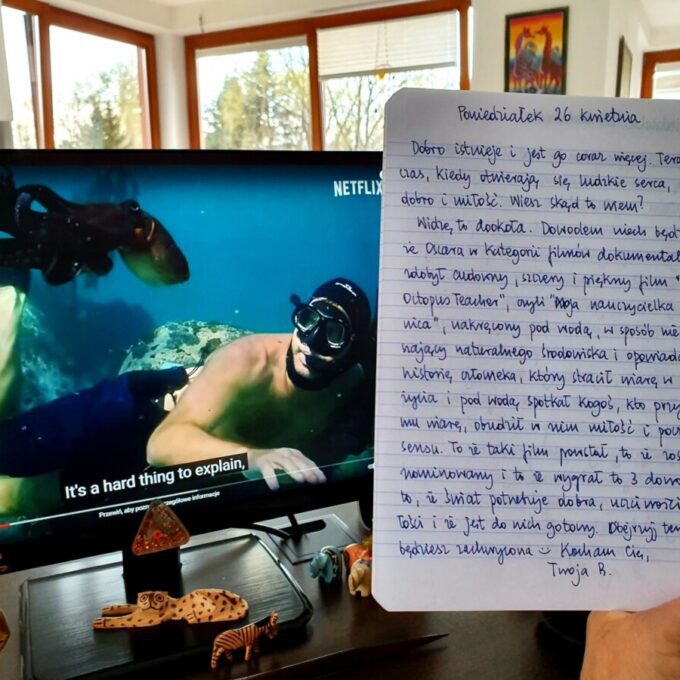 NETFLIX
It's a hard thing to explain,
Poniedziałek 26 kwietnia
Dobro istnieje i jest go coraz więcej. Teraz
czas, kiedy otwierają się ludzkie serca,
dobro i miłość. Wiesz skąd to wiem?
Widzę to dookoła. Dowodem niech będ
że Oscara w kategorii filmów dokumental
zdobył cudowny, szczery i piękny film "
Octopus Teacher", czyli "Moja nauczycielka
nica", nakręcony pod wodą, w sposób nie
szający naturalnego środowiska i opowiada
historię człowieka, który stracił wiarę w
życia i pod wodą spotkał kogoś, kto przy
mu wiarę, obudził w nim miłość i pocz
sensu. To że taki film powstał, to że zos
nominowany i to że wygrał to 3 dowo
to, że świat potrzebuje dobra, uczciwości
łości i że jest do nich gotowy. Obejrzyj ten
będziesz zachwycona Kocham Cię,
Twoja B.